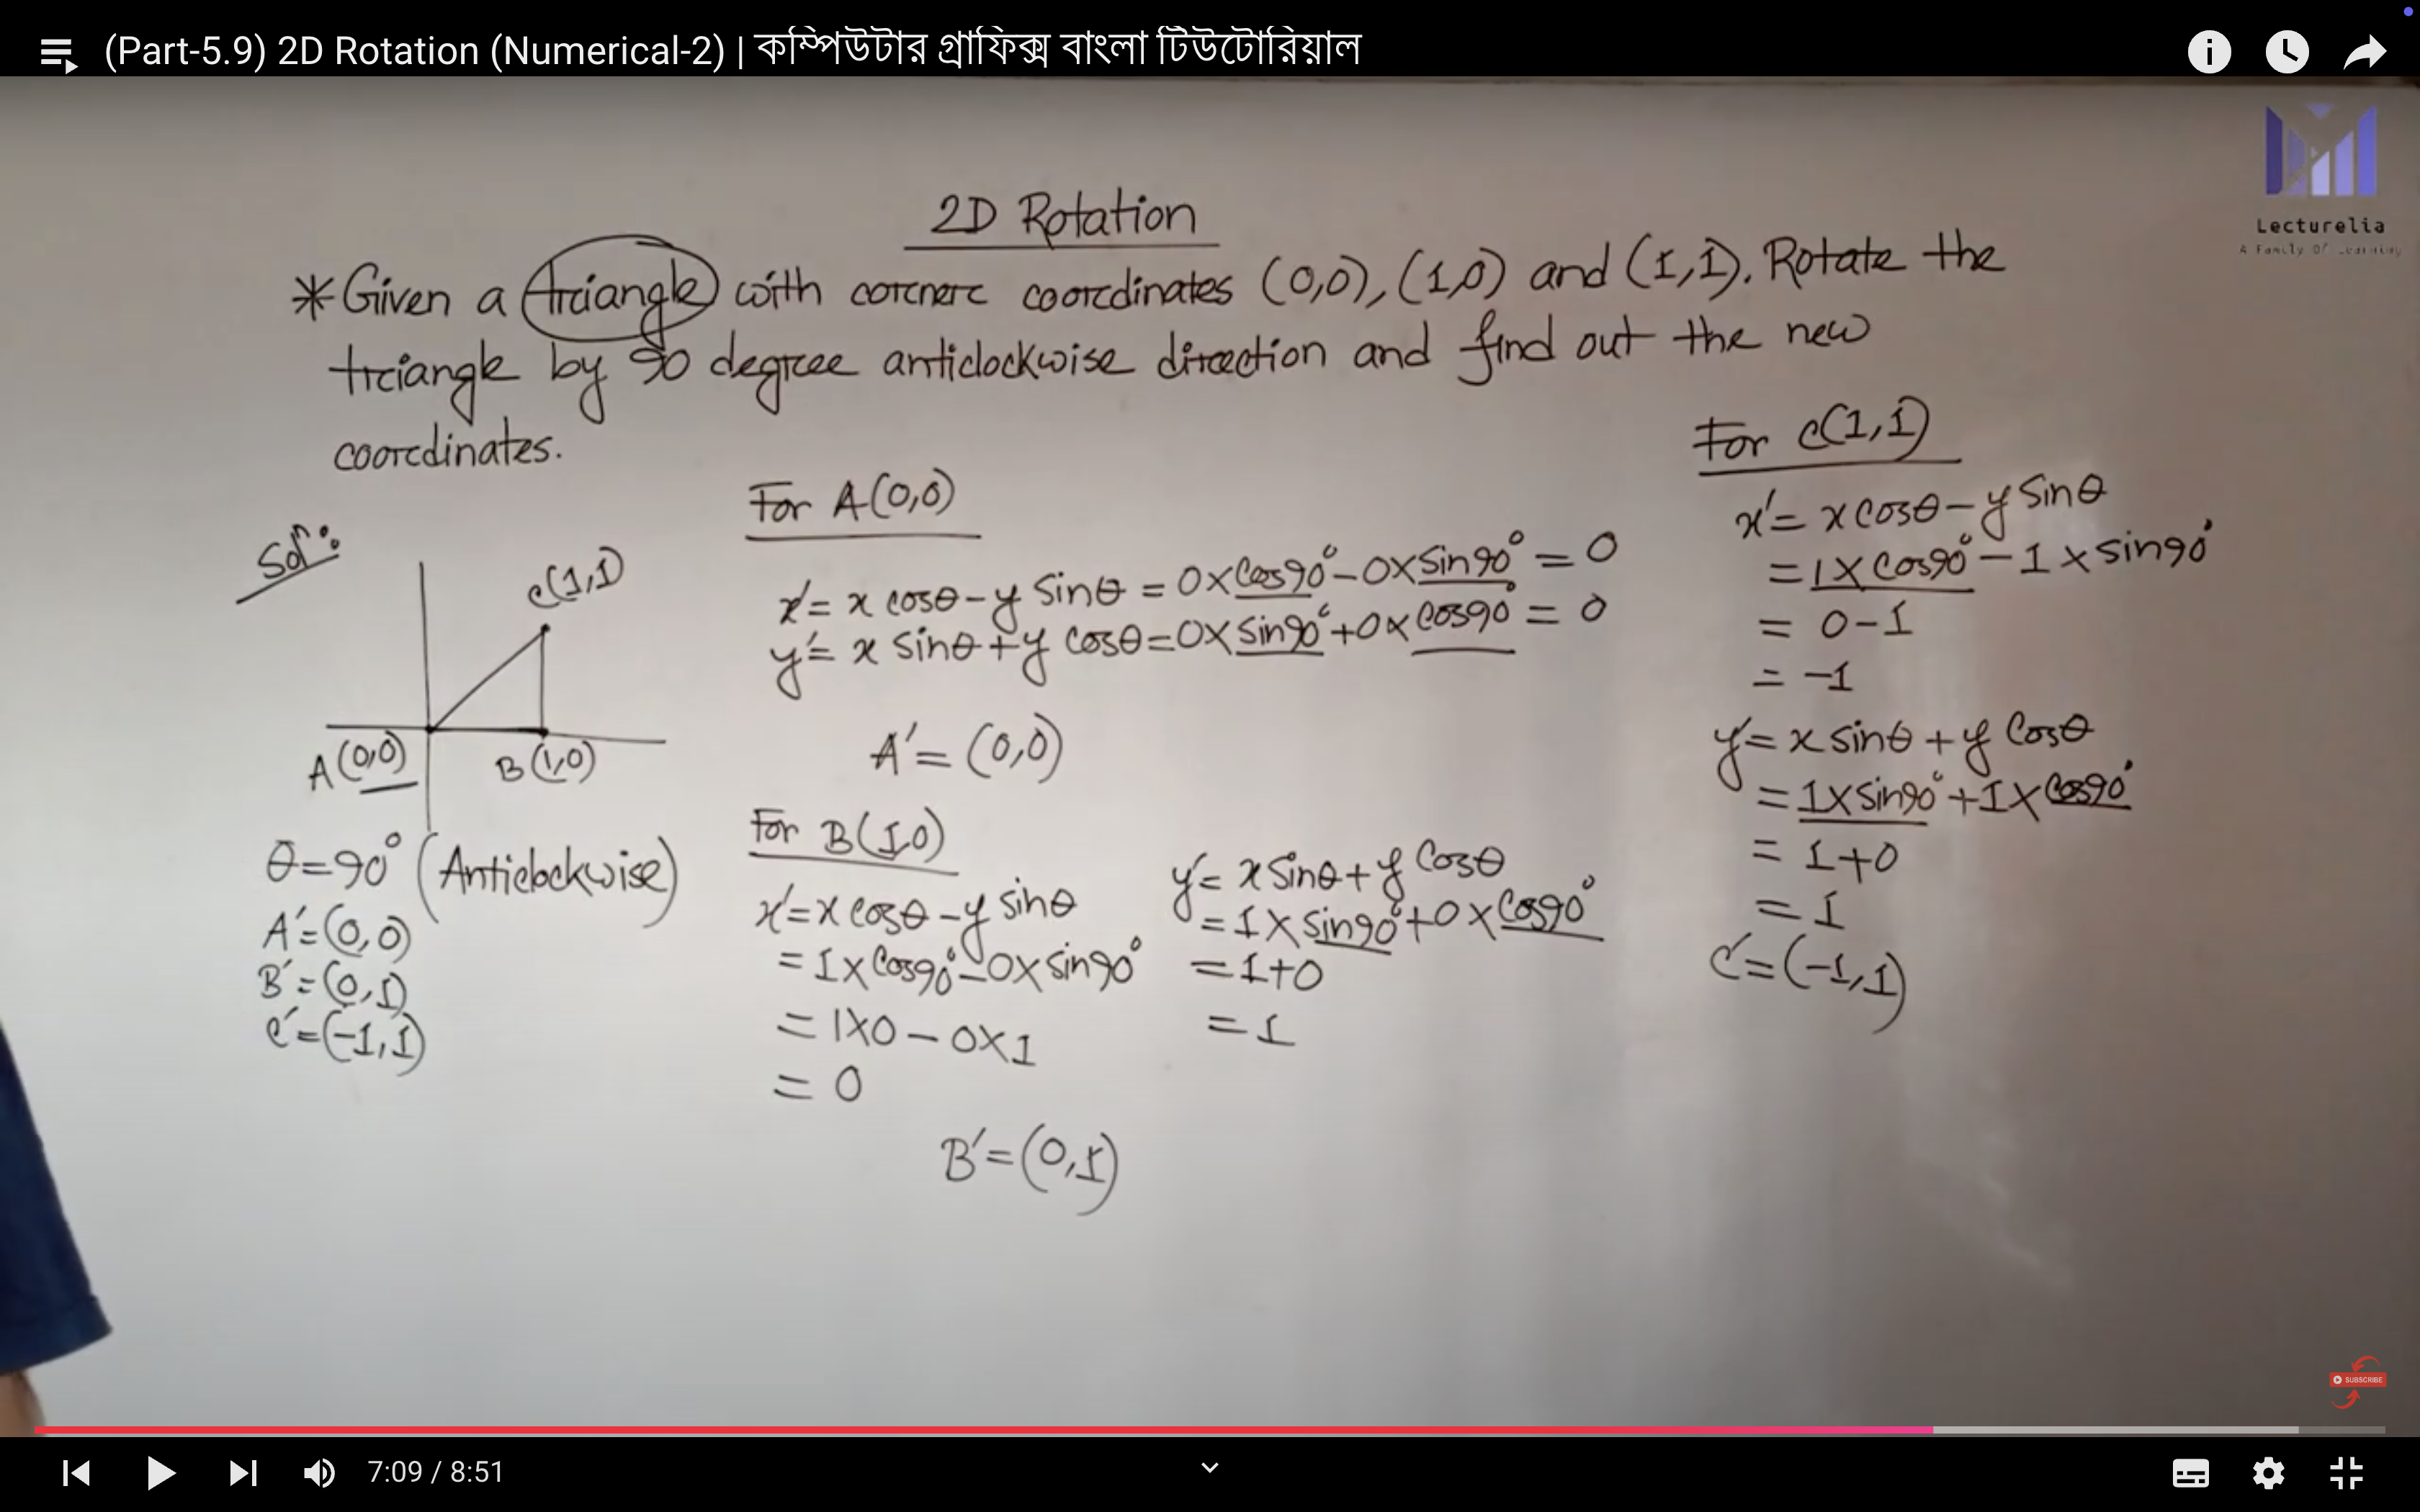 (Part-5.9) 2D Rotation (Numerical-2) | কম্পিউটার গ্রাফিক্স বাংলা টিউটোরিয়াল
Lecturelia
A Family Of Learning
2D Rotation
*Given a triangle with corner coordinates (0,0), (1,0) and (1,1). Rotate the
triangle by 90 degree anticlockwise direction and find out the new
coordinates.
Solⁿ:
C(1,1)
A(0,0)
B(1,0)
θ=90° (Anticlockwise)
A′=(0,0)
B′=(0,1)
C′=(-1,1)
For A(0,0)
x′= x cosθ-y Sinθ = 0×Cos90°-0×Sin90° = 0
y′= x Sinθ+y Cosθ=0×Sin90°+0×Cos90° = 0
A′=(0,0)
For B(1,0)
x′=x Cosθ-y Sinθ
=1×Cos90°-0×Sin90°
= 1×0 - 0×1
= 0
y′= x Sinθ+y Cosθ
=1×Sin90°+0×Cos90°
=1+0
=1
B′=(0,1)
For C(1,1)
x′= x Cosθ-y Sinθ
=1×Cos90°-1×Sin90°
= 0-1
= -1
y′= x Sinθ+y Cosθ
=1×Sin90°+1×Cos90°
= 1+0
=1
C′=(-1,1)
SUBSCRIBE
7:09 / 8:51